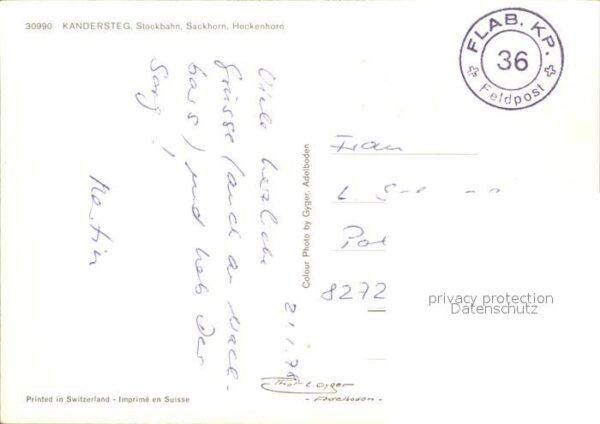 30990 KANDERSTEG, Stockbahn, Sackhorn, Hockenhorn
FLAB. KP.
36
Feldpost
Viele herzliche
Grüsse (auch an Nach-
bars) und heb Der
Sorg!
Martin
21.1.78
Colour Photo by Gyger, Adelboden
Frau
L.
8272
privacy protection
Datenschutz
Gyger
- Adelboden -
Printed in Switzerland - Imprimé en Suisse